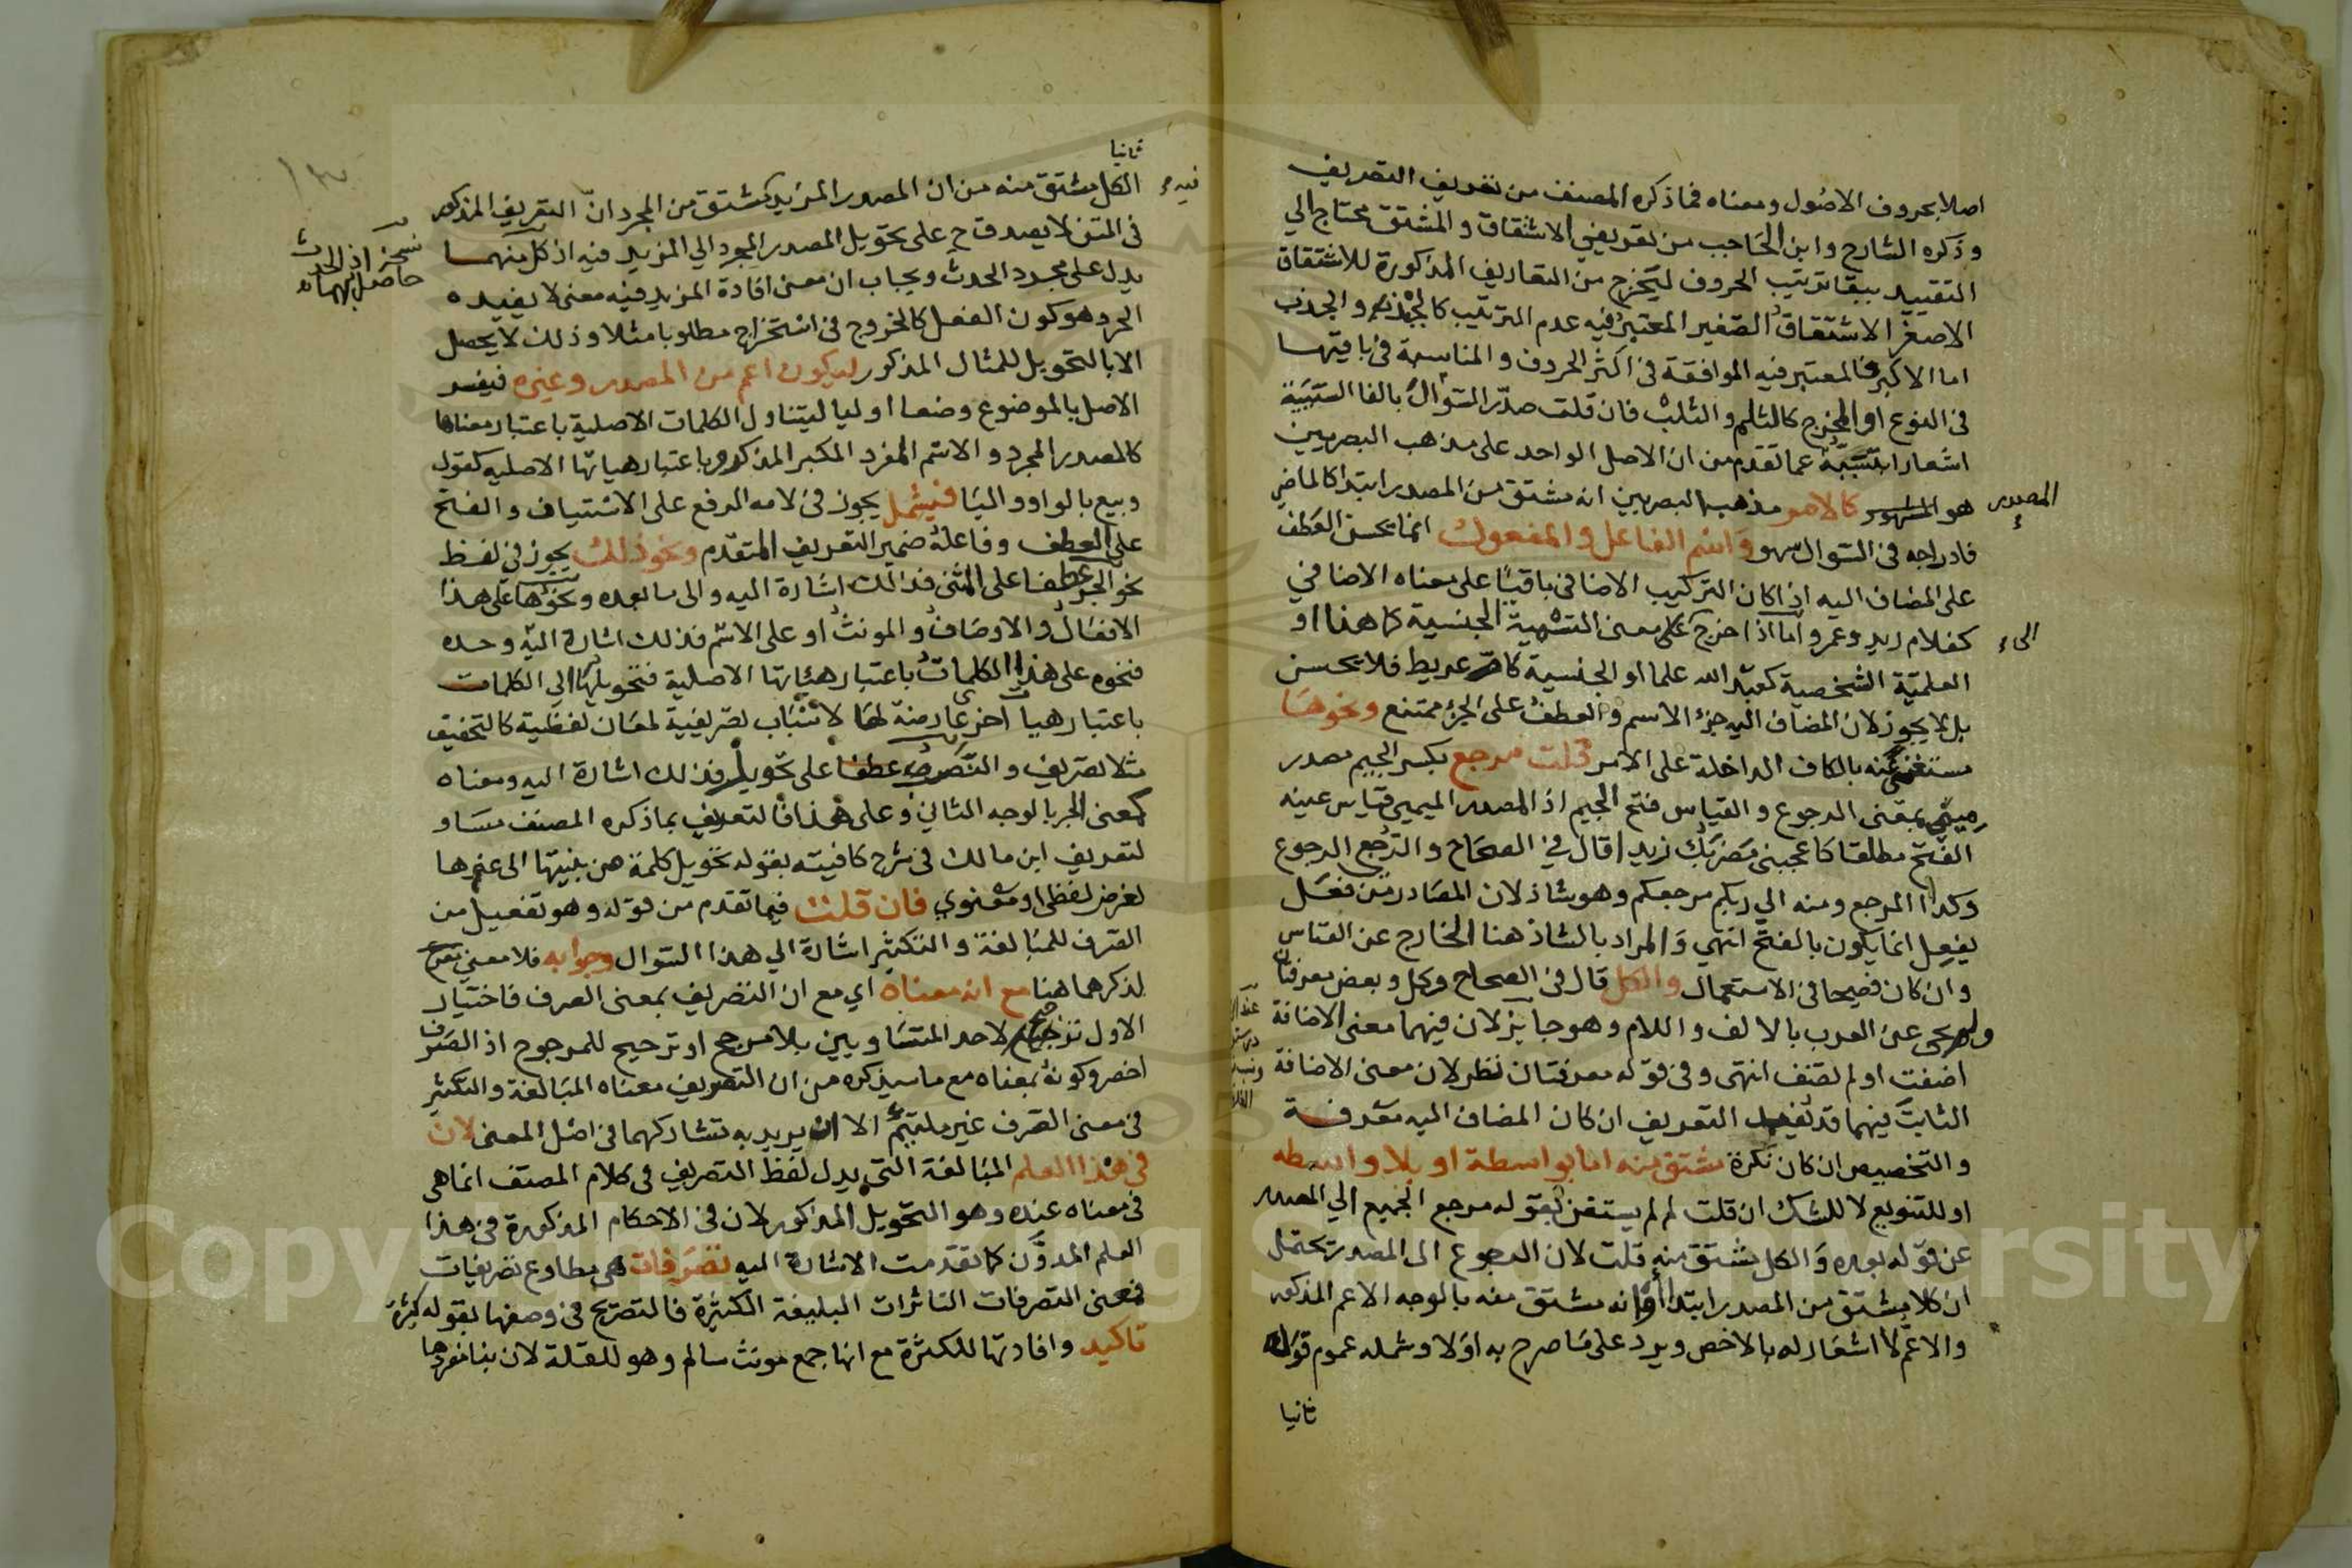 اصلا بحروف الاصول ومعناه فما ذكره المصنف من تعريف التصريف
وذكره الشارح وابن الحاجب من تعريفي الاشتقاق والمشتق محتاج الي
التقييد ببقا ترتيب الحروف ليخرج من التعاريف المذكورة للاشتقاق
الاصغر الاشتقاق الصغير المعتبر فيه عدم الترتيب كالجبذ والجذب
اما الاكبر فالمعتبر فيه الموافقة في اكثر الحروف والمناسبة في باقيها
في النوع او المخرج كالثلم والثلب فان قلت صدّر السوال بالفا السببية
اشعارا بتسببه عما تقدم من ان الاصل الواحد على مذهب البصريين
هو المشهور كالامر مذهب البصريين انه مشتق من المصدر ابتدا كالماضي
المصدر
فادراجه في السوال سهو واسم الفاعل والمفعول انما يحسن العطف
على المضاف اليه اذا كان التركيب الاضافي باقيا على معناه الاضافي
كغلام زيد وعمرو اما اذا خرج على معنى التسمية الجنسية كما هنا او
الى
العلمية الشخصية كعبد الله علما او الجنسية كام عريط فلا يحسن
بل لا يجوز لان المضاف اليه جزء الاسم والعطف على الجزء ممتنع ونحوها
مستغنى عنه بالكاف الداخلة على الامر قلت مرجع بكسر الجيم مصدر
ميمي بمعنى الرجوع والقياس فتح الجيم اذ المصدر الميمي قياس عينه
الفتح مطلقا كاعجبني مضربك زيدا قال في الصحاح والرجع الرجوع
وكذا المرجع ومنه الي ربكم مرجعكم وهو شاذ لان المصادر من فعل
يفعل انما يكون بالفتح انتهي والمراد بالشاذ هنا الخارج عن القياس
وان كان فصيحا في الاستعمال والكل قال في الصحاح وكل وبعض معرفتان
ولم يجي عن العرب بالالف واللام وهو جايز لان فيهما معنى الاضافة
اضفت او لم تضف انتهى وفي قوله معرفتان نظر لان معنى الاضافة
الثابت فيهما قد يفيد التعريف ان كان المضاف اليه معرفة
والتخصيص ان كان نكرة مشتق منه اما بواسطة او بلا واسطه
او للتنويع لا للشك ان قلت لم لم يستغن بقوله مرجع الجميع الي المصدر
عن قوله بعده والكل مشتق منه قلت لان الرجوع الى المصدر يحتمل
ان كلا مشتق من المصدر ابتدا او انه مشتق منه بالوجه الاعم المذكور
والاعم لا اشعار له بالاخص ويرد على ما صرح به اولا وشمله عموم قوله
ثانيا
ثانيا
الكل مشتق منه من ان المصدر المزيد كمشتق من المجرد ان التعريف المذكور
فيه
في المتن لا يصدق ح على تحويل المصدر المجرد الي المزيد فيه اذ كل منهما
نسخة اذ الحدث
حاصل بهما
يدل على مجرد الحدث ويجاب ان معنى افادة المزيد فيه معنى لا يفيده
المجرد هو كون الفعل كالخروج في استخراج مطلوبا مثلا وذلك لا يحصل
الا بالتحويل للمثال المذكور ليكون اعم من المصدر وغيره فيفسر
الاصل بالموضوع وضعا اوليا ليتناول الكلمات الاصلية باعتبار معناها
كالمصدر المجرد والاسم المفرد المكبر المذكور وباعتبار هياتها الاصليه كقول
وبيع بالواو واليا فيشمل يجوز في لامه الرفع على الاستياف والفتح
على العطف وفاعله ضمير التعريف المتقدم ونحو ذلك يجوز في لفظ
نحو الجر عطفا على المثنى فذالك اشارة اليه والى ما بعده ونحوها على هذا
الافعال والاوصاف والمونث او على الاسم فذلك اشارة اليه وحده
فنحوه على هذا الكلمات باعتبار هياتها الاصلية فتحويلها الي الكلمات
باعتبار هيات اخرى عارضة لها لاسباب تصريفية لمعان لفظية كالتخفيف
مثلا تصريف والنصب عطفا على تحويل فذلك اشارة اليه ومعناه
كمعنى الجر بالوجه الثاني وعلى هذا فالتعريف بما ذكره المصنف مساو
لتعريف ابن مالك في شرح كافيته بقوله تحويل كلمة من بنيتها الى غيرها
لغرض لفظي او معنوي فان قلت فيما تقدم من قوله وهو تفعيل من
الصرف للمبالغة والتكثير اشارة الي هذا السوال وجوابه فلا معنى
لذكرهما هنا مع انه معناه اي مع ان التصريف بمعنى الصرف فاختيار
الاول ترجيح لاحد المتساويين بلا مرجح او ترجيح للمرجوح اذ الصرف
اخصر وكونه بمعناه مع ما سيذكره من ان التصريف معناه المبالغة والتكثير
في معنى الصرف غير ملتيم الا ان يريد به تشاركهما في اصل المعنى لان
في هذا العلم المبالغة التي يدل لفظ التصريف في كلام المصنف انما هي
في معناه عنده وهو التحويل المذكور لان في الاحكام المذكورة في هذا
العلم المدون كما تقدمت الاشارة اليه تصرفات هي مطاوع تصريفات
فمعنى التصرفات التاثرات البليغة الكثيرة فالتصريح في وصفها بقوله كثيرة
تاكيد وافادتها للكثرة مع انها جمع مونث سالم وهو للقلة لان بنا مفردها